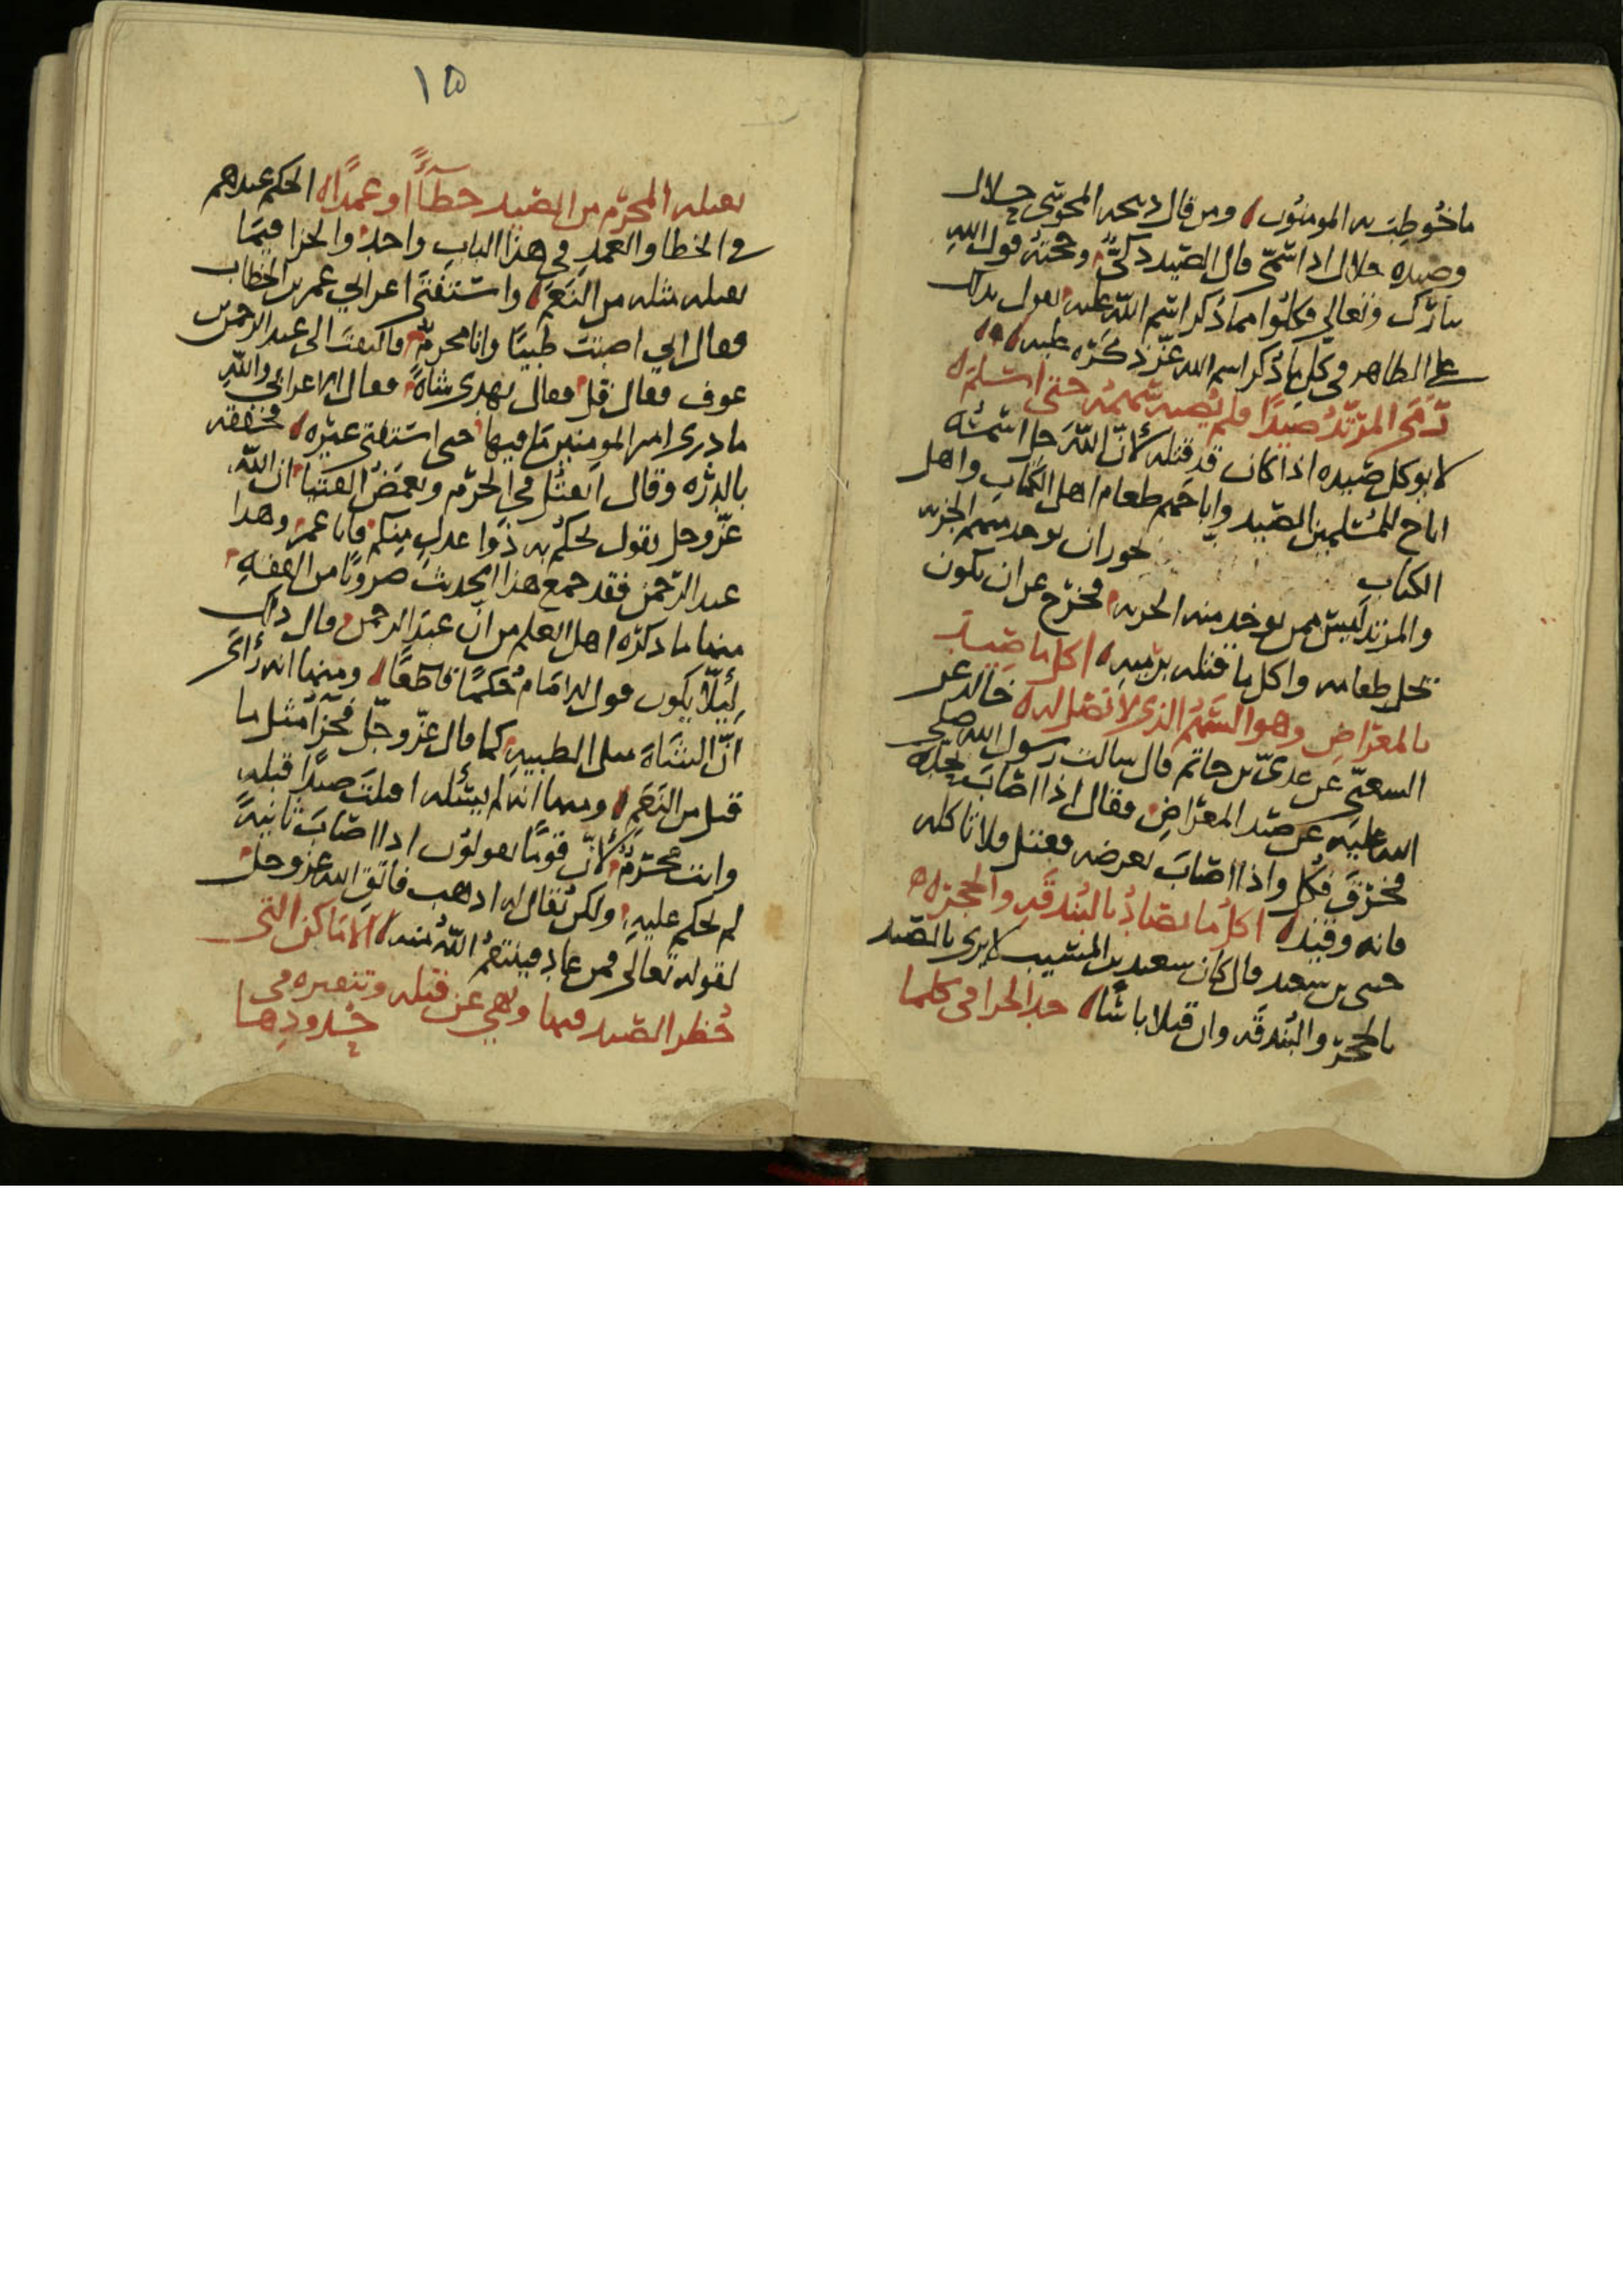 ما خوطب به المومنون ومن قال ذبيحه المجوسي حلال
وصيده حلال اذا سمى قال الصيد ذكى وحجته قول الله
تبارك وتعالى فكلوا مما ذكر اسم الله عليه يقول بذلك
على الظاهر في كل ما ذكر اسم الله عز ذكره عليه
رمى المرتد صيدا فلم يصبه سهمه حتى اسلم
لا يوكل صيده اذا كان قد قتله لان الله جل اسمه
اباح للمسلمين الصيد واباحهم طعام اهل الكتاب واهل
الكتاب يجوز ان يوخذ منهم الجزيه
والمرتد ليس ممن يوخذ منه الجزيه فخرج عن ان يكون
يحل طعامه واكل ما قتله برميه اكل ما صيد
بالمعراض وهو السهم الذي لا نصل له خالد عن
الشعبي عن عدي بن حاتم قال سالت رسول الله صلى
الله عليه عن صيد المعراض فقال اذا اصاب بحده
فخرق فكل واذا اصاب بعرضه فقتل فلا تاكله
فانه وقيذ اكل ما يصاد بالبندقه والحجر
يحيى بن سعيد قال كان سعيد بن المسيب لا يرى بالصيد
بالحجر والبندقه وان قتلا باسا حد الجزا في كلما
١٥
يقتله المحرم من الصيد خطأ او عمدا الحكم عندهم
في الخطا والعمد في هذا الباب واحد والجزا فيما
يقتله مثله من النعم واستفتى اعرابي عمر بن الخطاب
فقال اني اصبت ظبيا وانا محرم فالتفت الى عبد الرحمن
عوف فقال قل فقال يهدي شاة فقال الاعرابي والله
ما درى امير المومنين ما فيها حتى استفتى غيره فخفقه
بالدره وقال اتقتل في الحرم وتغمص الفتيا ان الله
عز وجل يقول يحكم به ذوا عدل منكم فانا عمر وهذا
عبد الرحمن فقد جمع هذا الحديث ضروبا من الفقه
منها ما ذكره اهل العلم من ان عبد الرحمن قال ذلك
لئلا يكون قول الامام حكما قاطعا ومنها انه رأى
ان الشاة مثل الظبيه كما قال عز وجل فجزا مثل ما
قتل من النعم ومنها انه لم يسئله اقتلت صيدا قبله
وانت محرم لان قوما يقولون اذا اصاب ثانية
لم يحكم عليه ولكن يقال له اذهب فاتق الله عز وجل
لقوله تعالى فمن عاد فينتقم الله منه الاماكن التي
حظر الصيد فيها ونهي عن قتله وتنفيره في حدودها